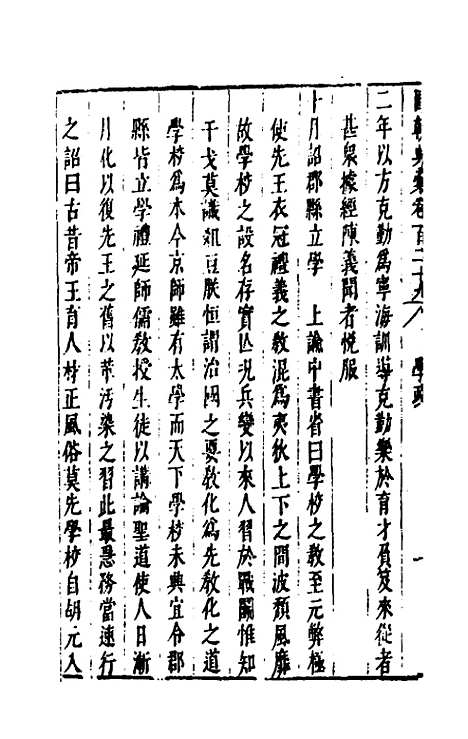 國朝典彙卷百二十九　學政　一
二年以方克勤爲寧海訓導克勤樂於育才負笈來從者
甚衆據經陳義聞者悅服
十月詔郡縣立學　上諭中書省曰學校之教至元弊極
使先王衣冠禮義之教混爲夷狄上下之間波頹風靡
故學校之設名存實亡况兵變以來人習於戰鬭惟知
干戈莫識俎豆朕恒謂治國之要教化爲先教化之道
學校爲本今京師雖有太學而天下學校未興宜令郡
縣皆立學禮延師儒教授生徒以講論聖道使人日漸
月化以復先王之舊以革汚染之習此最急務當速行
之詔曰古昔帝王育人材正風俗莫先學校自胡元入